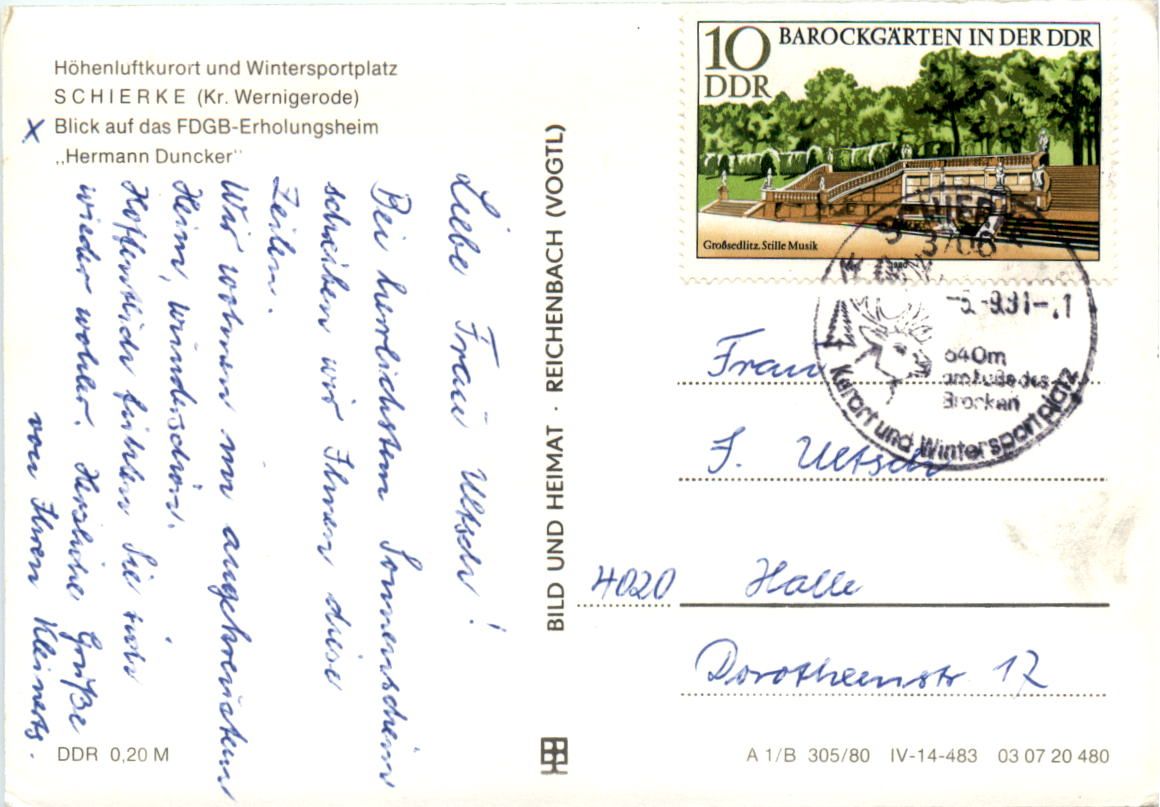 Höhenluftkurort und Wintersportplatz
SCHIERKE (Kr. Wernigerode)
x Blick auf das FDGB-Erholungsheim
„Hermann Duncker"
Liebe Frau Ultsch!
Bei herrlichstem Sonnenschein
schreiben wir Ihnen diese
Zeilen.
Wir wohnen im angekreuzten
Heim, wunderschön.
Hoffentlich fühlen Sie sich
wieder wohler. Herzliche Grüße
von Ihren Kleinerts.
DDR 0,20 M
BILD UND HEIMAT · REICHENBACH (VOGTL)
10 BAROCKGÄRTEN IN DER DDR
DDR
Großsedlitz, Stille Musik
1980
SCHIERKE
3706
-5.-9.81-.1
640m
am Fuße des
Brocken
Kurort und Wintersportplatz
Frau
J. Ultsch
4020 Halle
Dorotheenstr. 17
A 1/B 305/80 IV-14-483 03 07 20 480